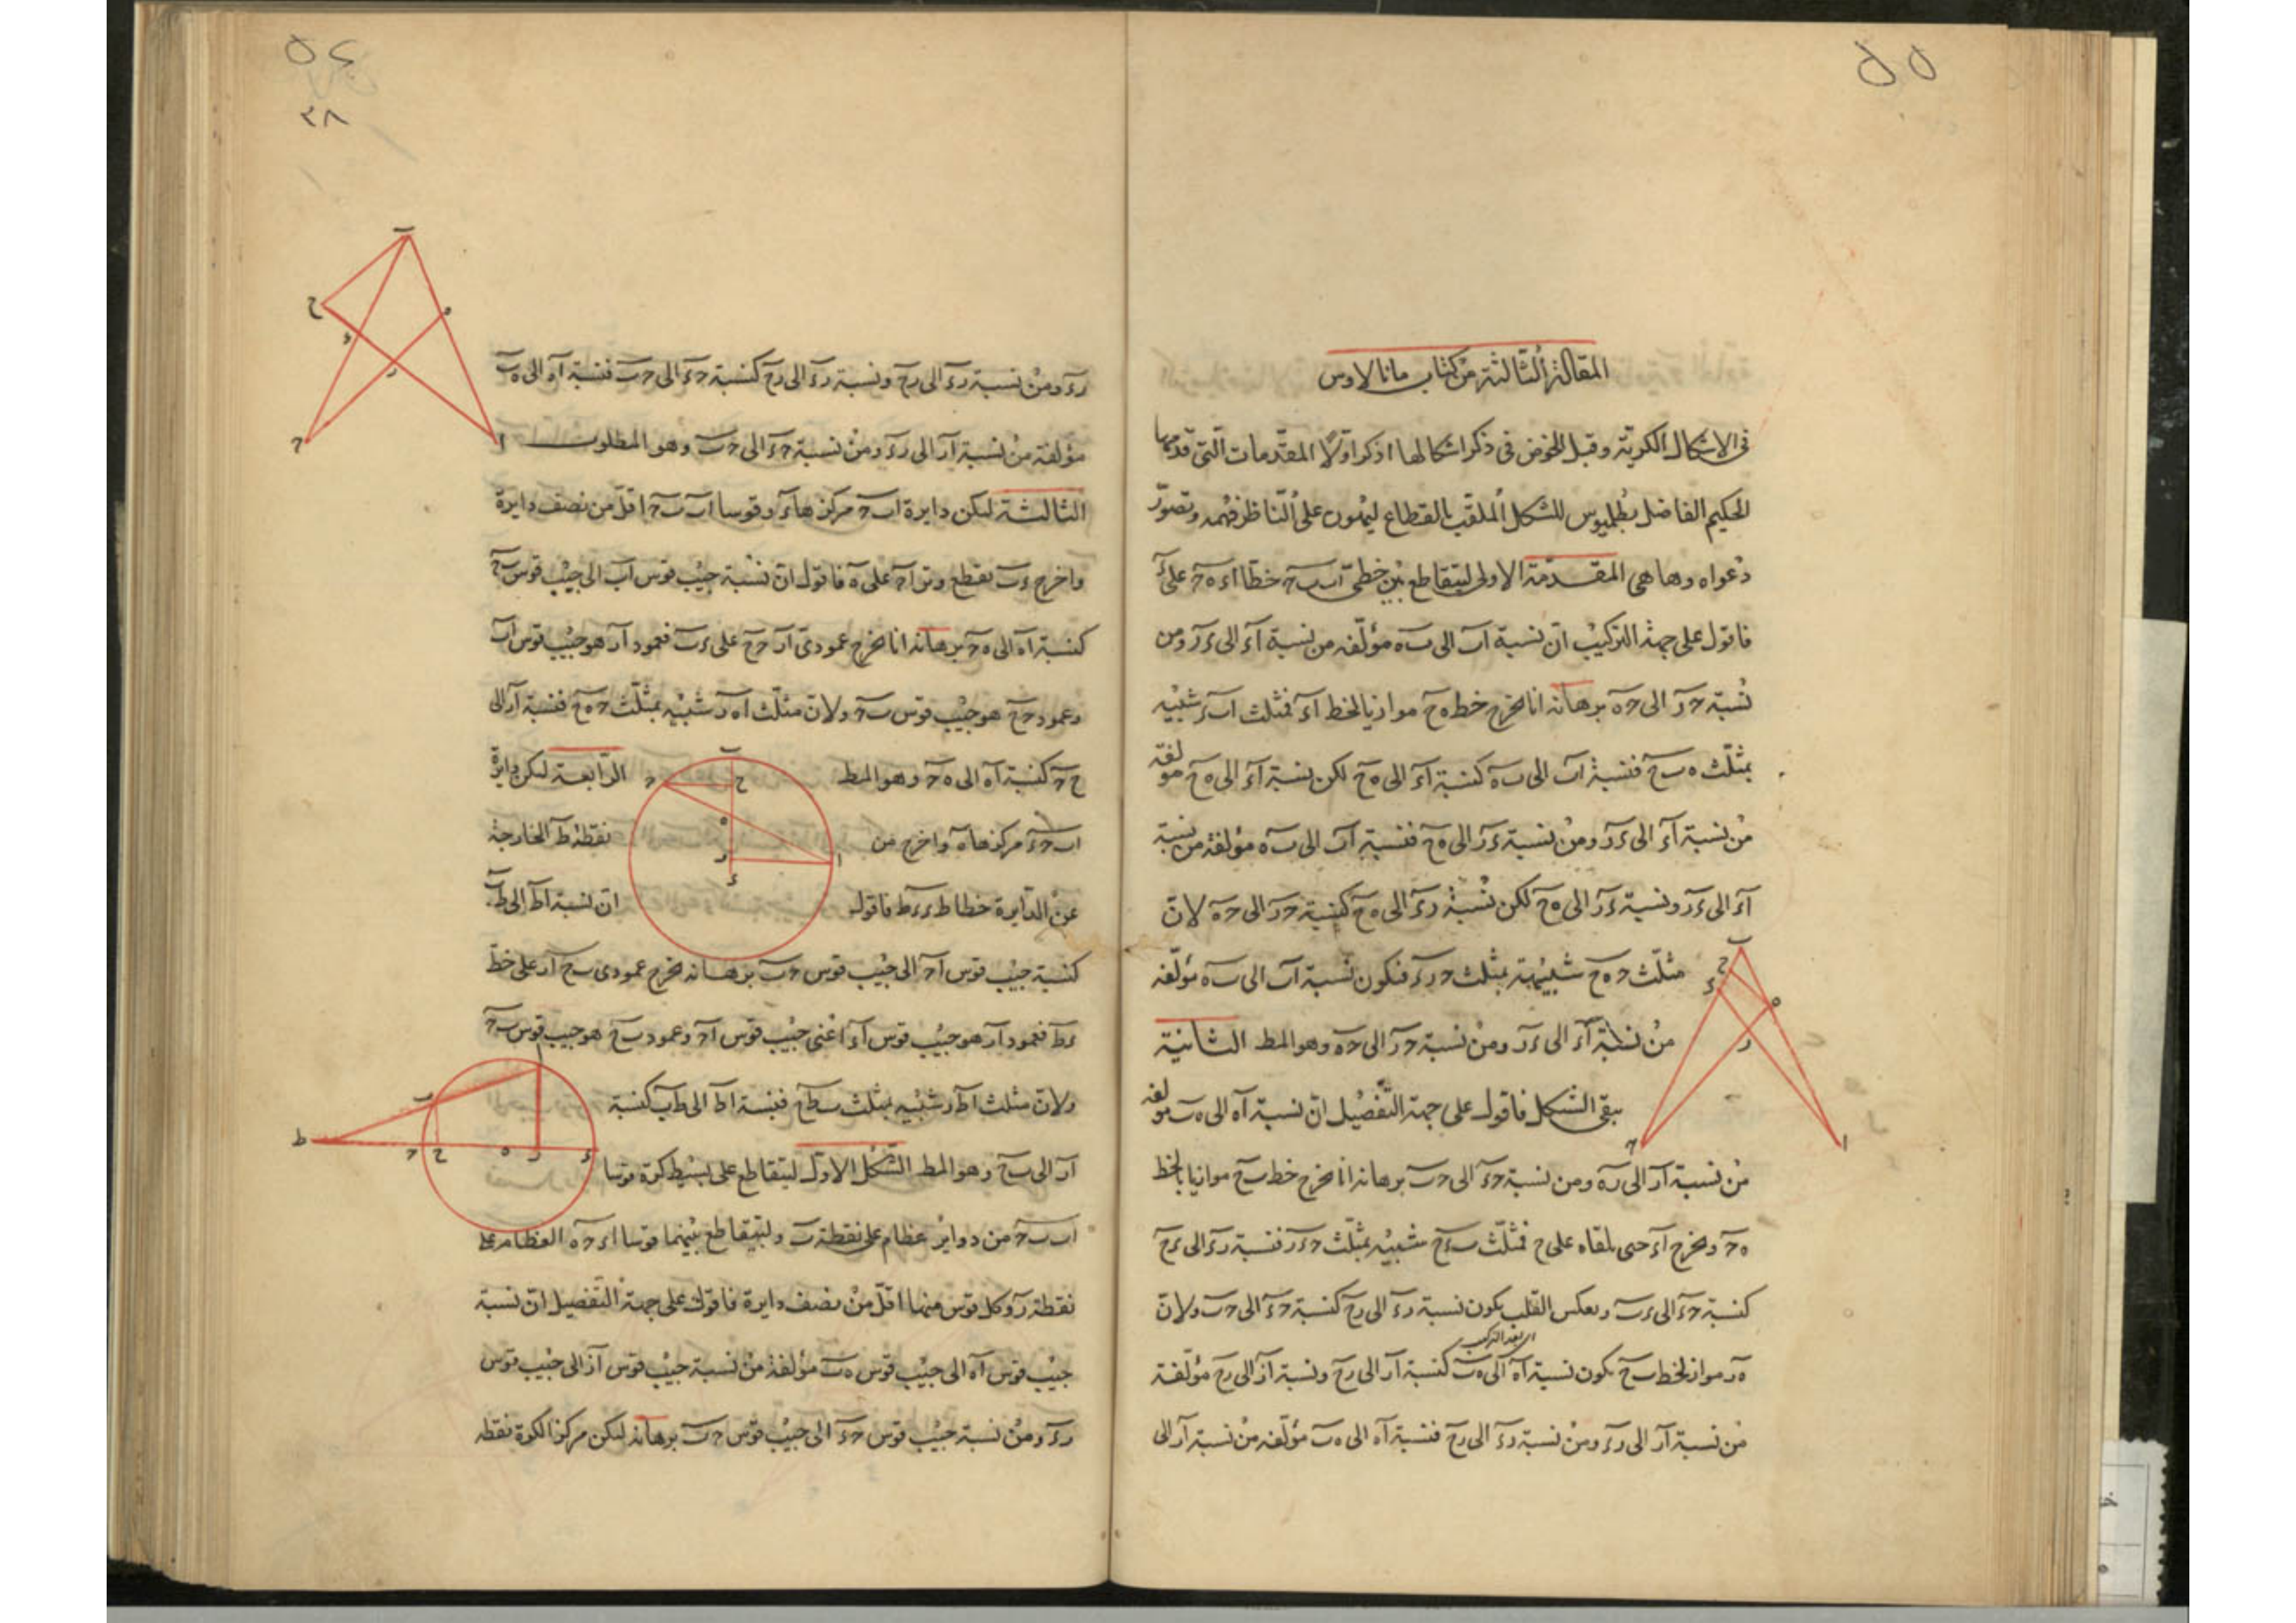 المقالة الثالثة من كتاب مانالاوس
فى الاشكال الكرية وقبل الخوض فى ذكر اشكالها اذكر اولا المقدمات التى قدمها
الحكيم الفاضل بطلميوس للشكل الملقب بالقطاع ليهون على الناظر فهمه وتصور
دعواه وها هى المقدمة الاولى ليتقاطع بين خطى اب ب ح خطا اء ه ح على ر
فاقول على جهة التركيب ان نسبة اب الى ب ه مؤلفه من نسبة اء الى ء ر ومن
نسبة ح ر الى ح ه برهانه انا نخرج خط ه ح موازيا لخط اء فمثلث اب ء شبيه
بمثلث ه ب ح فنسبة اب الى ب ه كنسبة اء الى ه ح لكن نسبة اء الى ه ح مولفة
من نسبة اء الى ء ر ومن نسبة ء ر الى ه ح فنسبة اب الى ب ه مؤلفة من نسبة
اء الى ء ر ونسبة ء ر الى ه ح لكن نسبة ر ء الى ه ح كنسبة ح ر الى ح ه لان
مثلث ح ه ح شبيهة بمثلث ح ر ء فتكون نسبة اب الى ب ه مؤلفه
من نسبة اء الى ء ر ومن نسبة ح ر الى ح ه وهو المط الثانية
يبقى الشكل فاقول على جهة التفصيل ان نسبة اه الى ه ب مولفه
من نسبة ار الى ر ء ومن نسبة ح ء الى ح ب برهانه انا نخرج خط ب ح موازيا لخط
ه ح ونخرج اء حتى يلقاه على ح فمثلث ب ء ح شبيه بمثلث ح ء ر فنسبة ر ء الى ء ح
كنسبة ح ء الى ء ب وبعكس القلب يكون نسبة ر ء الى ر ح كنسبة ح ء الى ح ب ولان
ه ر مواز لخط ب ح يكون نسبة اه الى ه ب كنسبة ار الى ر ح ونسبة ار الى ر ح مؤلفة
من نسبة ار الى ر ء ومن نسبة ر ء الى ر ح فنسبة اه الى ه ب مؤلفه من نسبة ار الى
٣٨
ر ء ومن نسبة ر ء الى ر ح ونسبة ر ء الى ر ح كنسبة ح ء الى ح ب فنسبة اه الى ه ب
مؤلفة من نسبة ار الى ر ء ومن نسبة ح ء الى ح ب وهو المطلوب
الثالثة ليكن دايرة اب ح مركزها ء وقوسا اب ب ح اقل من نصف دايرة
واخرج ء ب يقطع وتر اح على ه فاقول ان نسبة جيب قوس اب الى جيب قوس ب ح
كنسبة اه الى ه ح برهانه انا نخرج عمودى ار ح ح على ء ب فعمود ار هو جيب قوس اب
وعمود ح ح هو جيب قوس ب ح ولان مثلث اه ر شبيه بمثلث ح ه ح فنسبة ار الى
ح ح كنسبة اه الى ه ح وهو المط الرابعة ليكن دايرة
اب ح ء مركزها ه واخرج من نقطة ط الخارجة
عن الدايرة خطا ط ء ط فاقول ان نسبة اط الى ط ب
كنسبة جيب قوس اح الى جيب قوس ح ب برهانه نخرج عمودى ب ح ار على خط
ء ط فعمود ار هو جيب قوس اء اعنى جيب قوس اح وعمود ب ح هو جيب قوس ب ح
ولان مثلث اط ر شبيه بمثلث ب ط ح فنسبة اط الى ط ب كنسبة
ار الى ب ح وهو المط الشكل الاول ليتقاطع على بسيط كرة قوسا
اب ب ح من دواير عظام على نقطة ب وليتقاطع بينهما قوسا اء ح ه العظام على
نقطة ر وكل قوس منها اقل من نصف دايرة فاقول على جهة التفصيل ان نسبة
جيب قوس اه الى جيب قوس ه ب مؤلفة من نسبة جيب قوس ار الى جيب قوس
ر ء ومن نسبة جيب قوس ح ء الى جيب قوس ح ب برهانه ليكن مركز الكرة نقطه